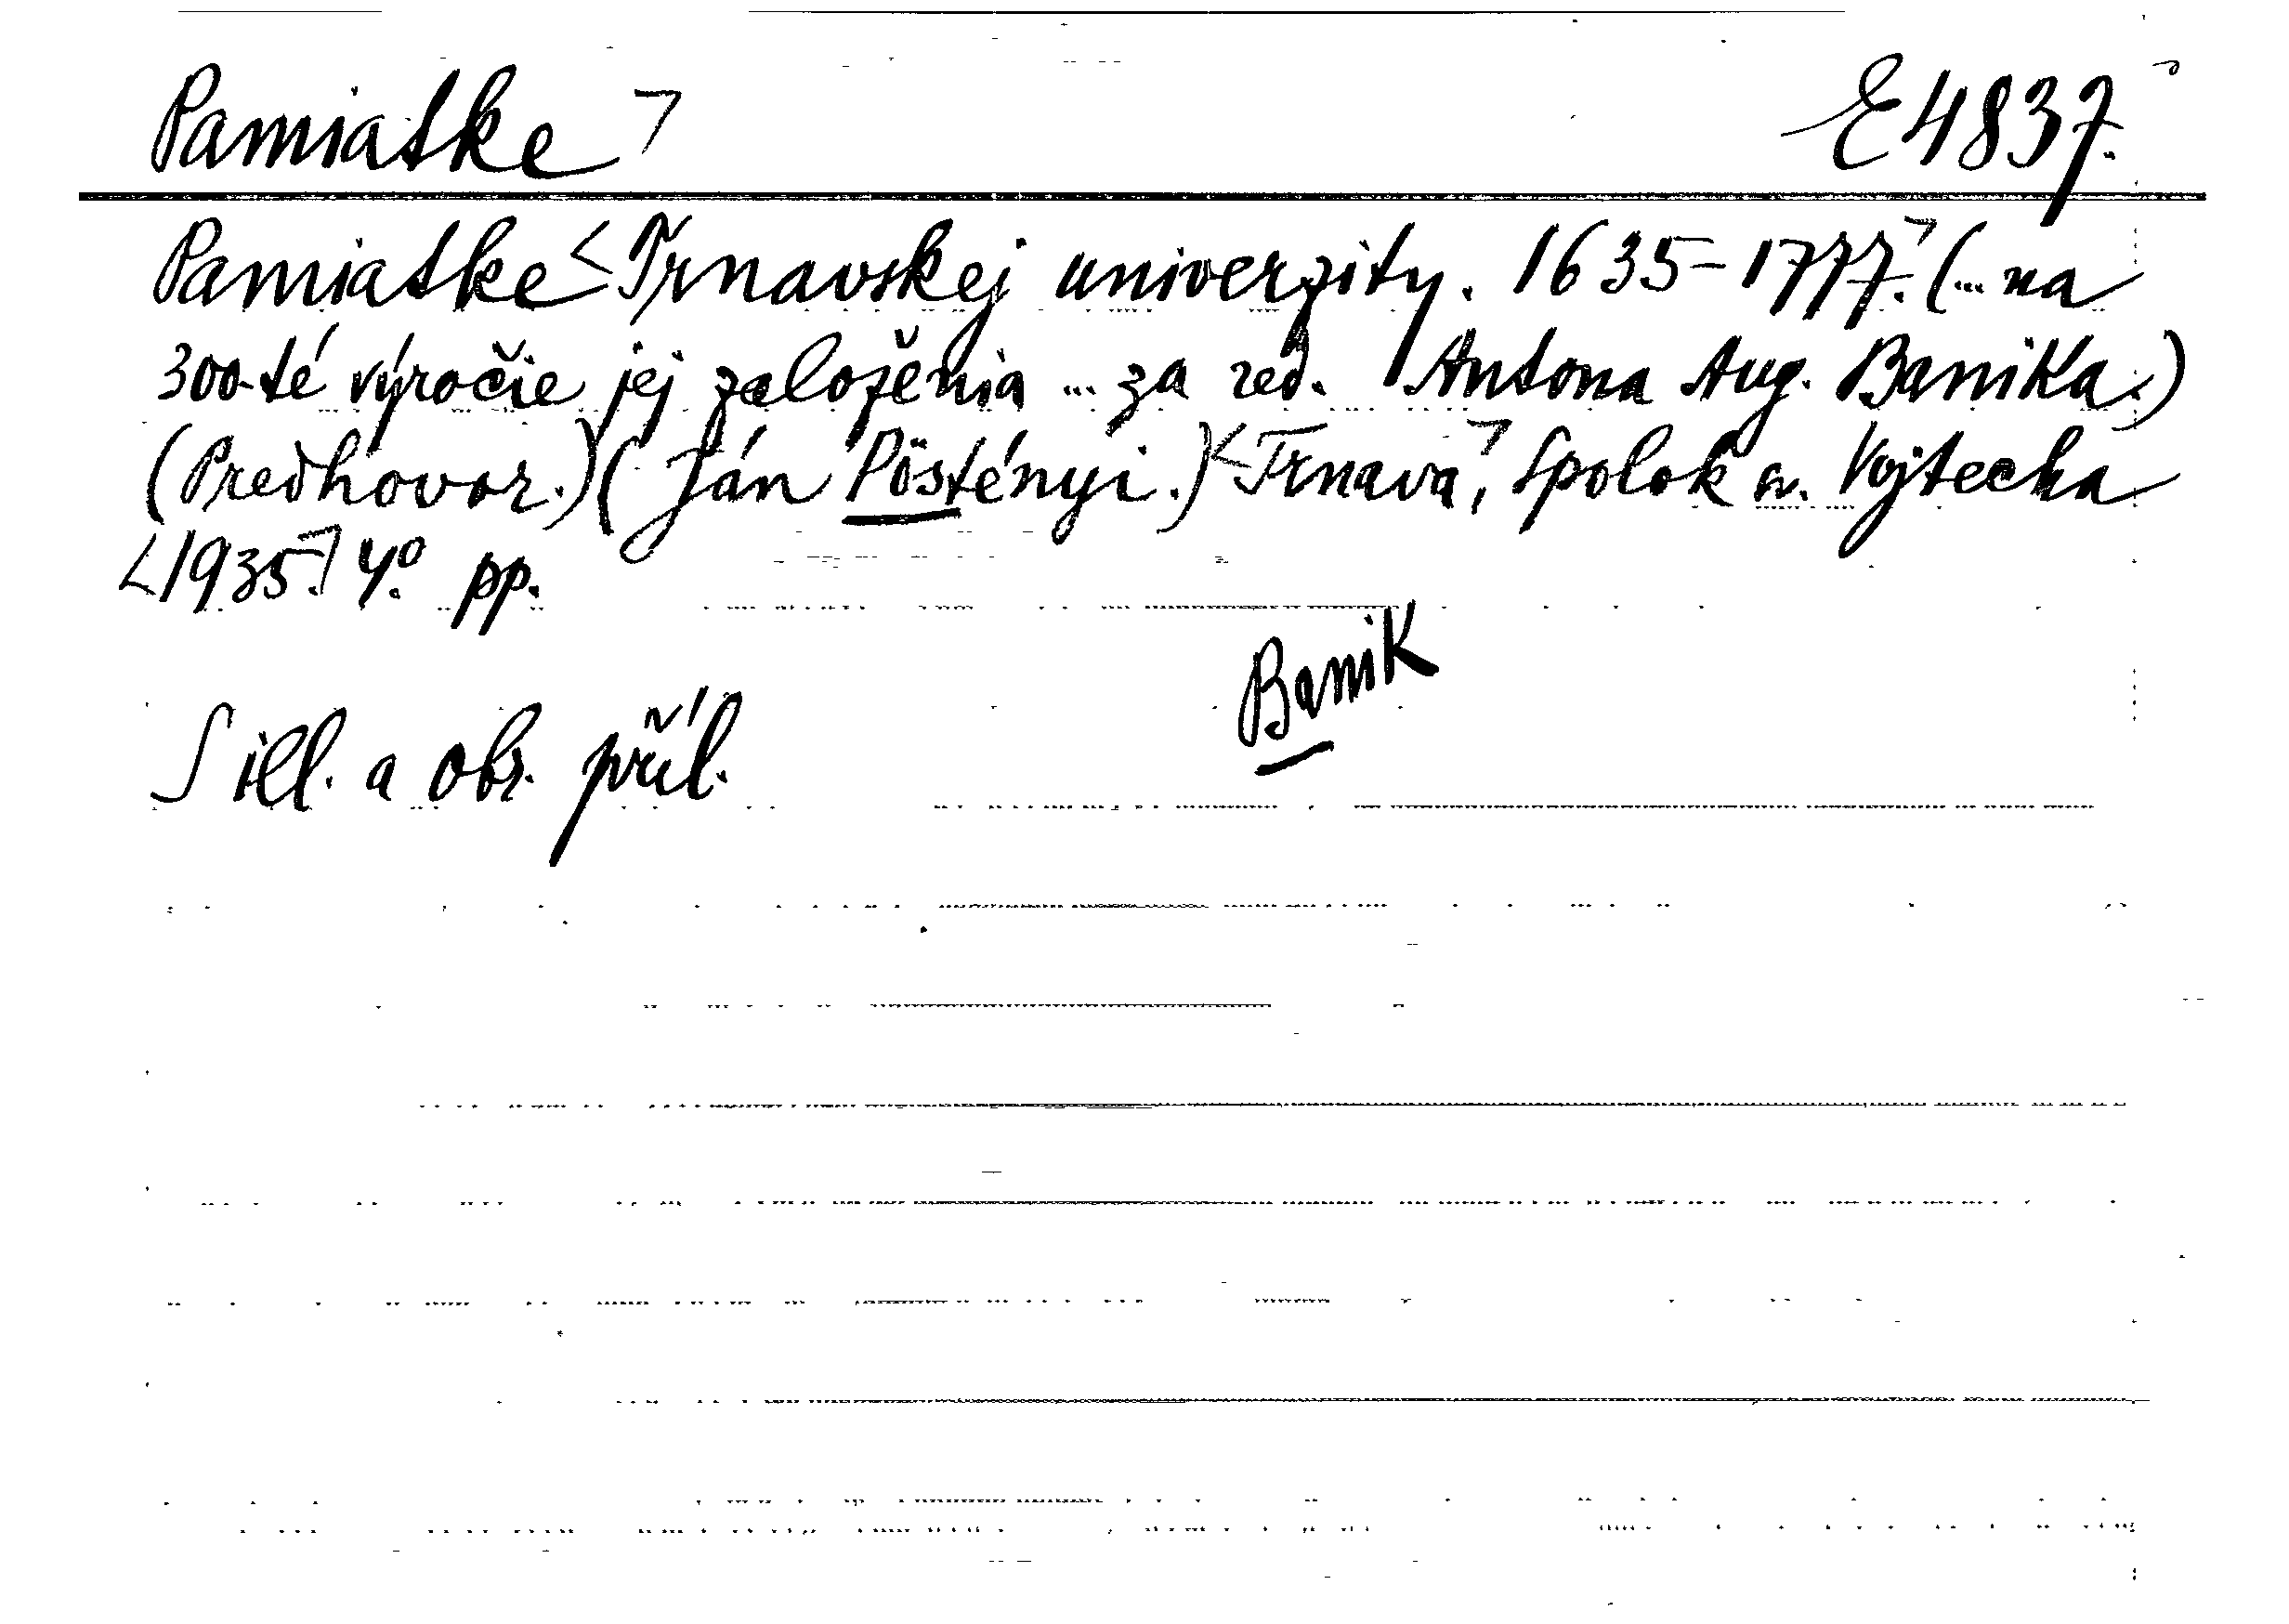 Pamiatke ㄱ E 4837.
Pamiatke < Trnavskej univerzity. 1635-1777.ㄱ (... na
300-té výročie jej založenia ... za red. Antona Aug. Banika.)
(Predhovor.) (Ján Pöstényi.) < Trnavaㄱ, Spolok sv. Vojtecha
< 1935.ㄱ 4°. pp.
Banik
S ill. a obr. příl.